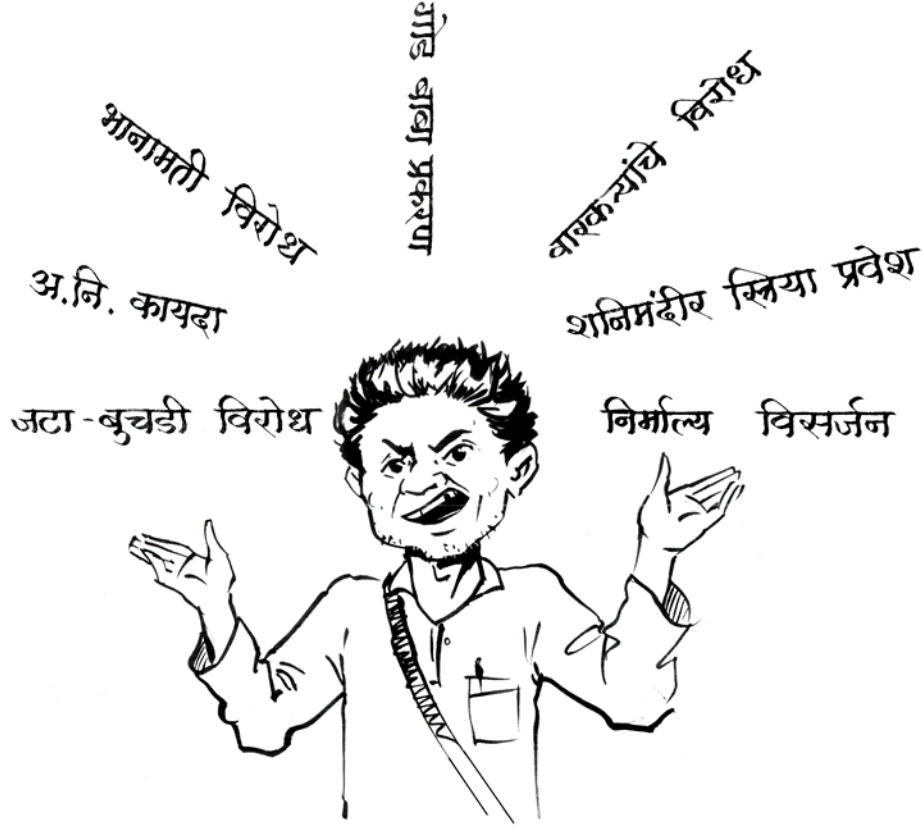 जटा - बुचडी विरोध
अ.नि. कायदा
भानामती विरोध
गोड बाबा प्रकरण
वारकऱ्यांचे विरोध
शनिमंदीर स्त्रिया प्रवेश
निर्माल्य विसर्जन